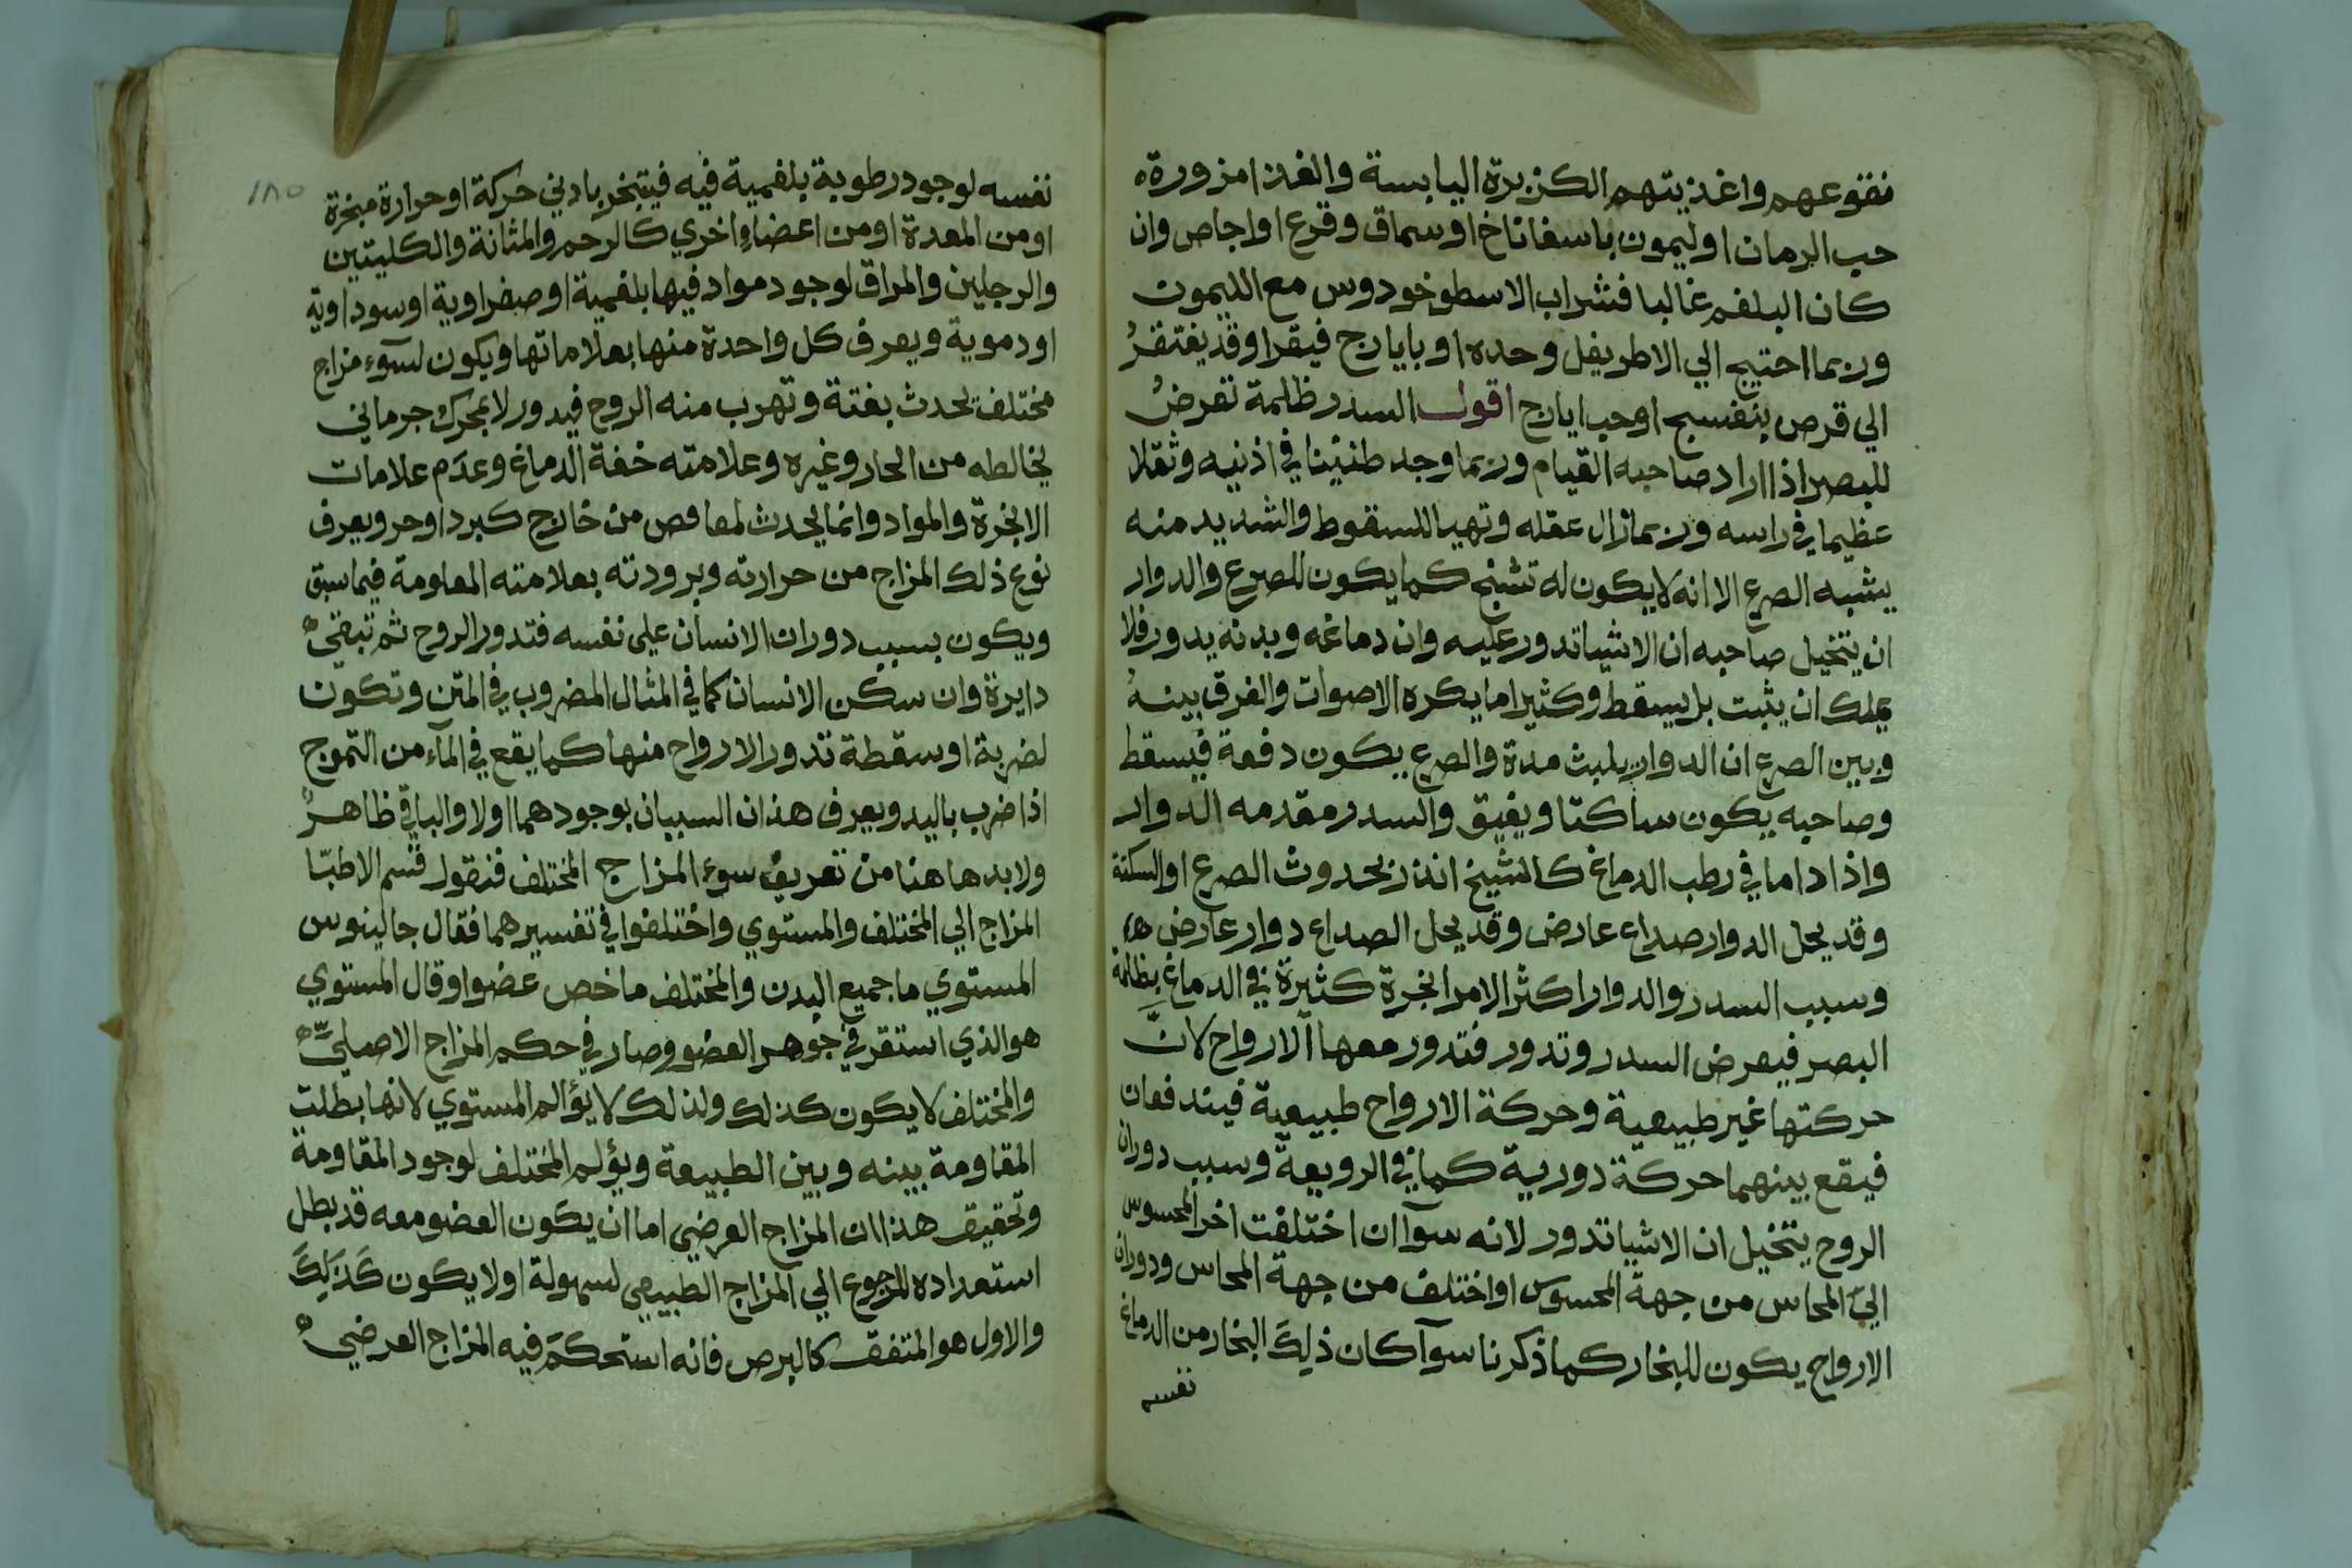 نقوعهم واغذيتهم الكزبرة اليابسة والغذا مزورة
حب الرمان اوليمون باسفاناخ اوسماق وقرع او اجاص وان
كان البلغم غالبا فشراب الاسطوخودوس مع الليمون
وربما احتيج الي الاطريفل وحده او بايارج فيقرا وقد يفتقرُ
الي قرص بنفسج اوحب ايارج اقول السدر ظلمة تعرضُ
للبصر اذا اراد صاحبه القيام وربما وجد طنينا في اذنيه وثقلا
عظيما في راسه وربما زال عقله وتهيا للسقوط والشديد منه
يشبه الصرع الا انه لا يكون له تشنج كما يكون للصرع والدوار
ان يتخيل صاحبه ان الاشيا تدور عليه وان دماغه وبدنه يدور فلا
يملك ان يثبت بل يسقط وكثيرا ما يكره الاصوات والفرق بينهُ
وبين الصرع ان الدوار يلبث مدة والصرع يكون دفعة فيسقط
وصاحبه يكون ساكتا ويفيق والسدر مقدمه الدوار
واذا داما في رطب الدماغ كالشيخ انذر بحدوث الصرع او السكتة
وقد يحل الدوار صداع عارض وقد يحل الصداع دوار عارض
وسبب السدر والدوار اكثر الامر ابخرة كثيرة في الدماغ بظلمة
البصر فيعرض السدر وتدور فتدور معها الارواح لانَّ
حركتها غير طبيعية وحركة الارواح طبيعية فيتدافعان
فيقع بينهما حركة دورية كما في الزوبعة وسبب دوران
الروح يتخيل ان الاشيا تدور لانه سوآ ان اختلفت اخر المحسوس
الي المحاس من جهة المحسوس او اختلف من جهة المحاس ودوران
الارواح يكون للبخار كما ذكرنا سوآ كان ذلِكَ البخار من الدماغ
نفسه
١٨٥
نفسه لوجود رطوبة بلغمية فيه فيتبخر بادني حركة او حرارة مبخرة
او من المعدة او من اعضاءٍ اخري كالرحم والمثانة والكليتين
والرجلين والمراق لوجود مواد فيها بلغمية او صفراوية او سوداوية
او دموية ويعرف كل واحدة منها بعلاماتها ويكون لسوء مزاج
مختلف يحدث بغتة وتهرب منه الروح فيدور لا بمحرك جرماني
يخالطه من البخار وغيره وعلامته خفة الدماغ وعدَم علامات
الابخرة والمواد وانما يحدث لمعافص من خارج كبرد او حر ويعرف
نوع ذلك المزاج من حرارته وبرودته بعلامته المعلومة فيما سبق
ويكون بسبب دوران الانسان علي نفسه فتدور الروح ثم تبقي
دايرة وان سكن الانسان كما في المثال المضروب في المتن وتكون
لضربة او سقطة تدور الارواح منها كما يقع في المآء من التموج
اذا ضرب باليد ويعرف هذان السببان بوجودهما اولا والباقي ظاهرُ
ولا بد هاهنا من تعريف سوء المزاج المختلف فنقول قسم الاطبّا
المزاج الي المختلف والمستوي واختلفوا في تفسيرهما فقال جالينوس
المستوي ما جميع البدن والمختلف ما خص عضوا وقال المستوي
هو الذي استقر في جوهر العضو وصار في حكم المزاج الاصليّ
والمختلف لا يكون كذلك ولذلك لا يؤلم المستوي لانها بطلت
المقاومة بينه وبين الطبيعة ويؤلم المختلف لوجود المقاومة
وتحقيق هذا ان المزاج العرضي اما ان يكون العضو معه قد بطل
استعداده للرجوع الي المزاج الطبيعي لسهولة او لا يكون كَذلِكَ
والاول هو المتفق كالبرص فانه استحكَم فيه المزاج العرضي